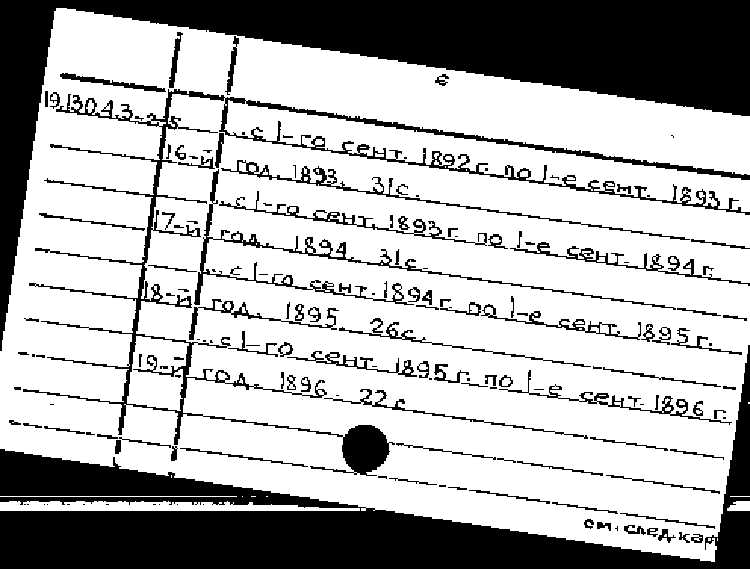 6
19.130.4.3-2-5
...с 1-го сент. 1892 г. по 1-е сент. 1893 г.
16-й год. 1893. 31с.
...с 1-го сент. 1893 г. по 1-е сент. 1894 г.
17-й год. 1894. 31с.
...с 1-го сент. 1894 г. по 1-е сент. 1895 г.
18-й год. 1895. 26с.
...с 1-го сент. 1895 г. по 1-е сент. 1896 г.
19-й год. 1896. 22с
см. след. кар